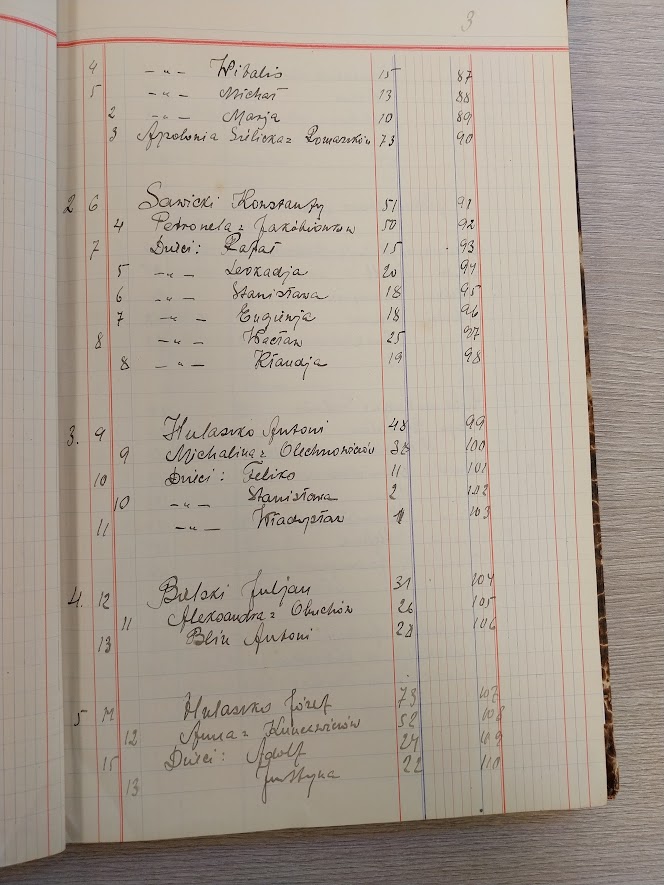 3
4 — " — Witalis 15 87
5 — " — Michał 13 88
2 — " — Marja 10 89
3 Apolonia Sielicka z Romaszków 73 90
2 6 Sawicki Konstanty 51 91
4 Petronela z Jakóbionków 50 92
7 Dzieci: Rafał 15 93
5 — " — Leokadja 20 94
6 — " — Stanisława 18 95
7 — " — Eugienja 18 96
8 — " — Wacław 25 97
8 — " — Klaudja 19 98
3. 9 Hulaszko Antoni 48 99
9 Michalina z Olechnowiczów 38 100
10 Dzieci: Feliks 11 101
10 — " — Stanisława 2 102
11 — " — Władysław 103
4. 12 Bielski Juljan 31 104
11 Aleksandra z Obuchów 26 105
13 Antoni 28 106
5 14 Hulaszko Józef 73 107
12 Anna z 52 108
15 Dzieci: Adolf 24 109
13 Justyna 22 110